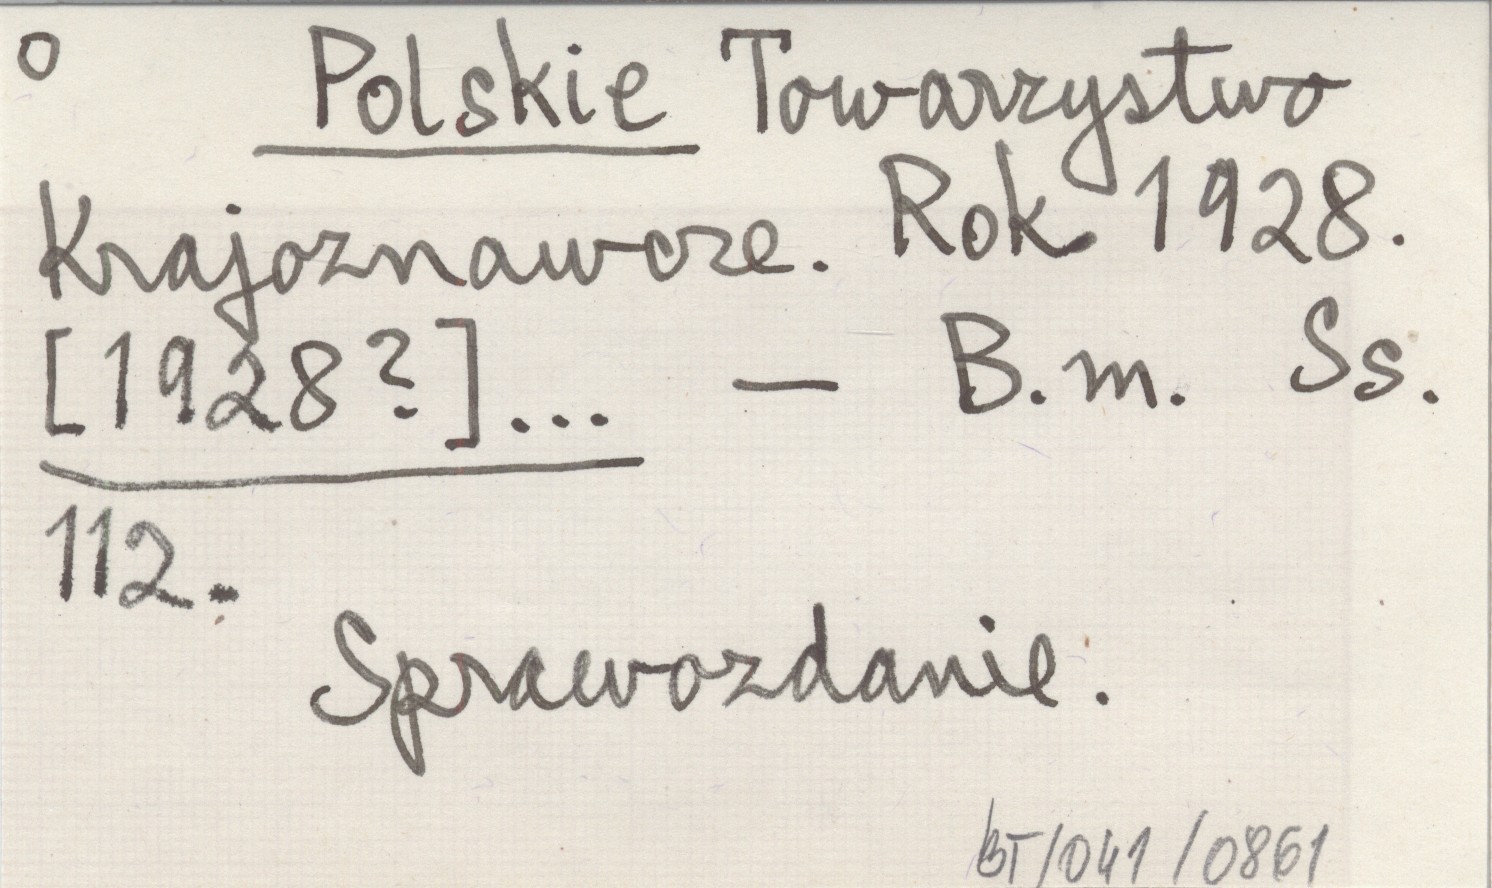 o Polskie Towarzystwo
Krajoznawcze. Rok 1928.
[1928?]... — B.m. Ss.
112.
Sprawozdanie.
BT/041/0861